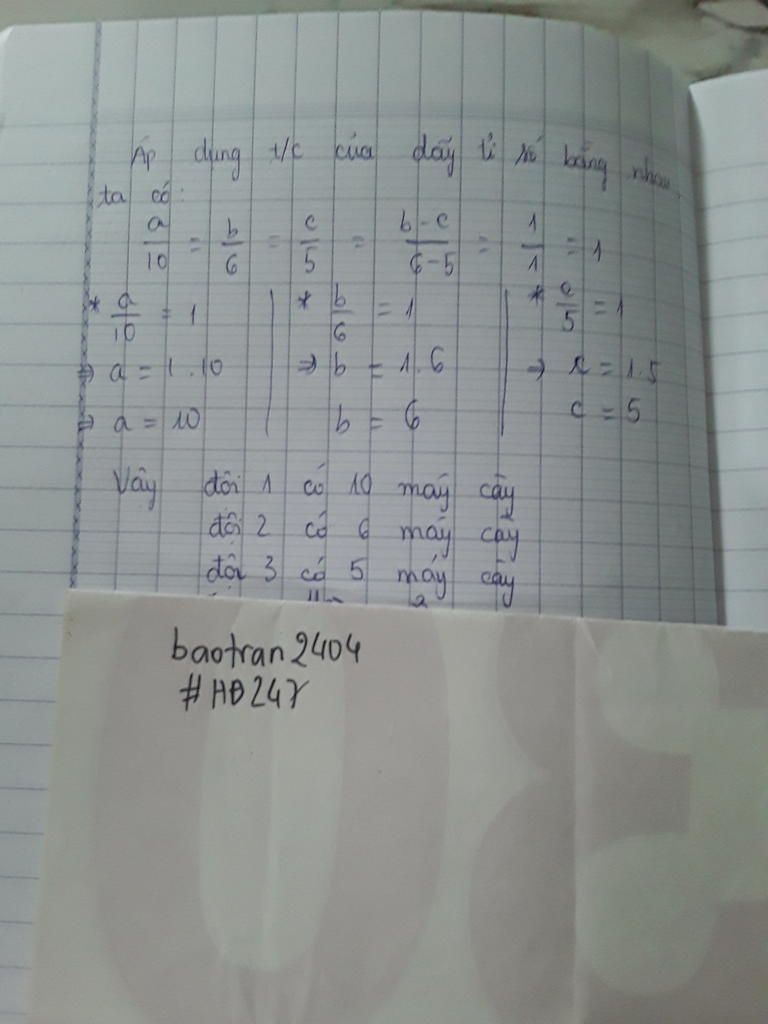 Áp dụng t/c của dãy tỉ số bằng nhau,
ta có:
a/10 = b/6 = c/5 = b-c/6-5 = 1/1 = 1
* a/10 = 1 | * b/6 = 1 | * c/5 = 1
⇒ a = 1.10 | ⇒ b = 1.6 | ⇒ c = 1.5
⇒ a = 10 | b = 6 | c = 5
Vậy đội 1 có 10 máy cày
đội 2 có 6 máy cày
đội 3 có 5 máy cày
baotran2404
#HĐ247